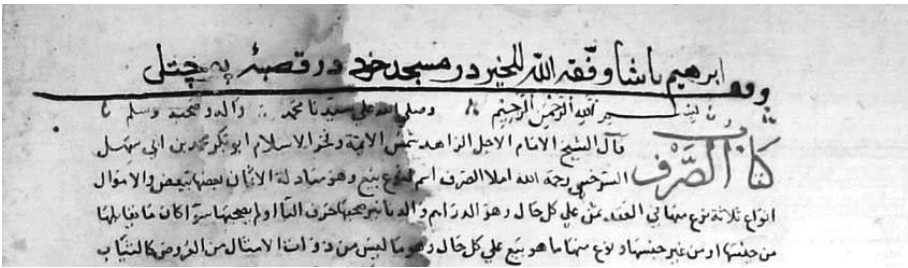 وقف ابرهيم پاشا وفقه الله للخير در مسجد خود در قصبهٔ چتلى
بسم الله الرحمن الرحيم وصلى الله على سيدنا محمد واله وصحبه وسلم
كتاب الصرف قال الشيخ الامام الاجل الزاهد شمس الايمة وفخر الاسلام ابو بكر محمد بن ابى سهل
السرخسى رحمه الله املا الصرف اسم لنوع بيع وهو مبادلة الاثمان بعضها ببعض والاموال
انواع ثلاثة نوع منها فى العقد ثمن على كل حال وهو الدراهم والدنانير صحبها حرف البا او لم يصحبها سوآ كان ما يقابلها
من جنسها او من غير جنسها ونوع منها ما هو بيع على كل حال وهو ما ليس من ذوات الامثال من العروض كالثياب